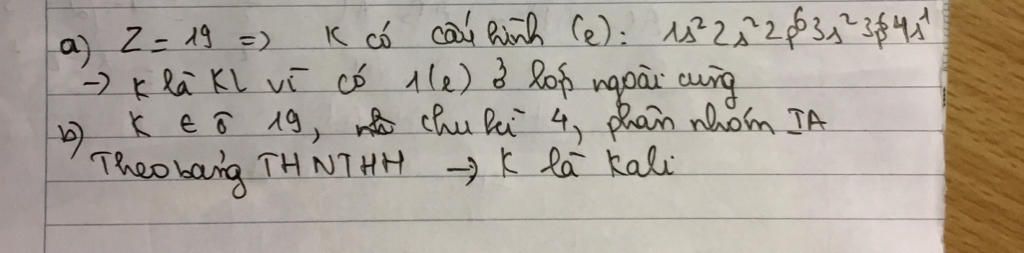 a) Z = 19 => K có cấu hình (e): 1s² 2s² 2p⁶ 3s² 3p⁶ 4s¹
→ K là KL vì có 1(e) ở lớp ngoài cùng
b) K ∈ ô 19, chu kì 4, phân nhóm IA
Theo bảng THNTHH → K là Kali